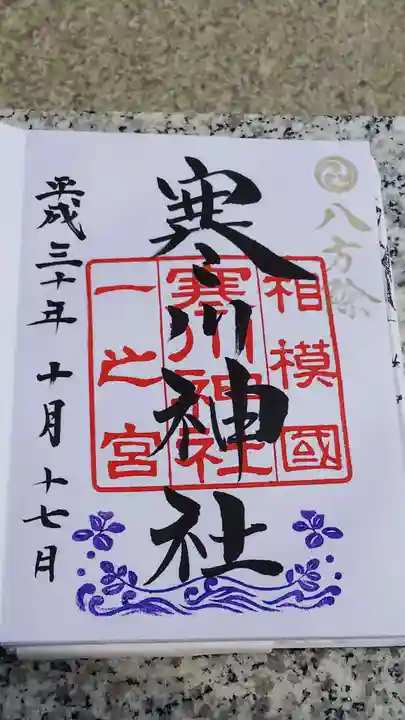 八方除
寒川神社
相模國
寒川神社
一之宮
平成三十年十月十七日